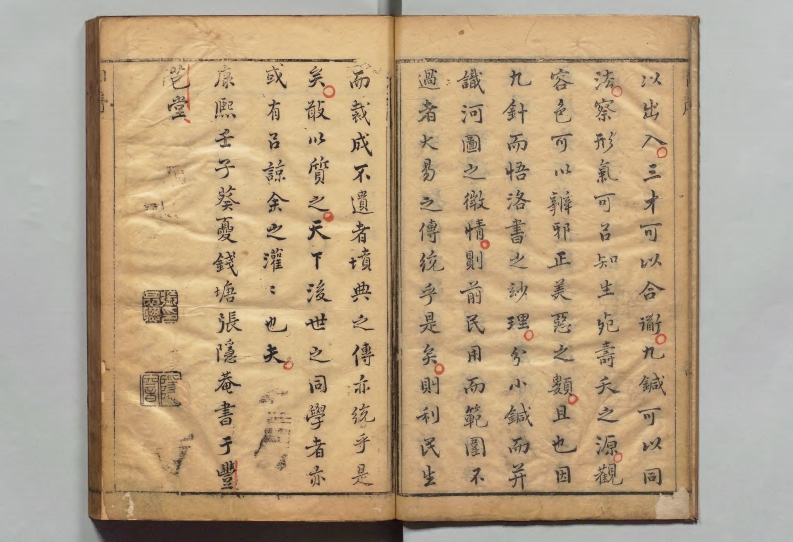 以出入三才可以合衜九鍼可以同
法察形氣可㠯知生死壽夭之源觀
容色可以辧邪正美惡之類且也因
九針而悟洛書之妙理分小鍼而并
識河圖之微情則前民用而範圍不
過者大易之傳統乎是矣則利民生
而裁成不遺者墳典之傳亦統乎是
矣敢以質之天下後世之同學者亦
或有㠯諒余之灌〻也夫
康熈壬子葵憂錢塘張隱菴書于豐
芑堂